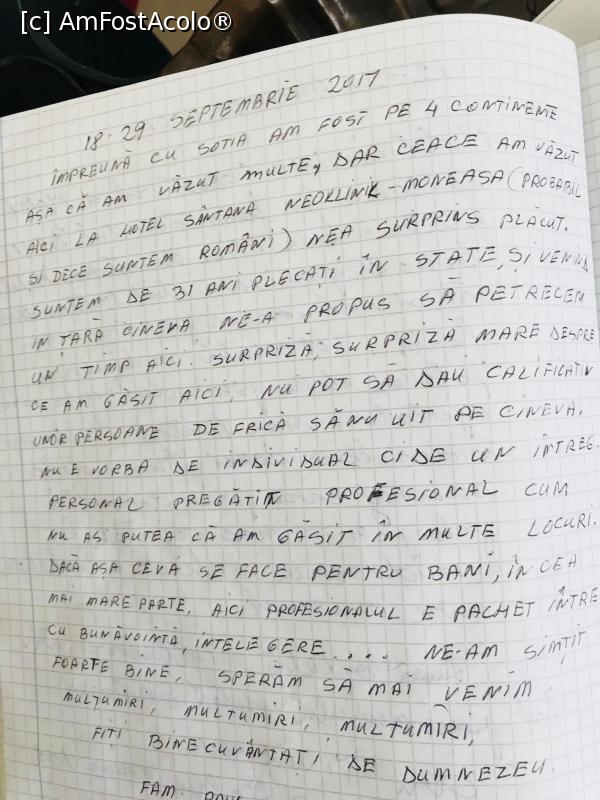 [c] AmFostAcolo®
18-29 SEPTEMBRIE 2017
ÎMPREUNĂ CU SOTIA AM FOST PE 4 CONTINENTE
AȘA CĂ AM VĂZUT MULTE, DAR CEACE AM VĂZUT
AICI LA HOTEL SÂNTANA NEOKLINIK-MONEASA (PROBABIL
ȘI DECE SUNTEM ROMÂNI) NEA SURPRINS PLĂCUT.
SUNTEM DE 31 ANI PLECAȚI ÎN STATE, ȘI VENIND
IN ȚARĂ CINEVA NE-A PROPUS SĂ PETRECEM
UN TIMP AICI. SURPRIZĂ, SURPRIZĂ MARE DESPRE
CE AM GĂSIT AICI. NU POT SĂ DAU CALIFICATIV
UNOR PERSOANE DE FRICĂ SĂNU UIT PE CINEVA.
NU E VORBA DE INDIVIDUAL CI DE UN ÎNTREG
PERSONAL PREGĂTIT PROFESIONAL CUM
NU AȘ PUTEA CĂ AM GĂSIT ÎN MULTE LOCURI.
DACĂ AȘA CEVA SE FACE PENTRU BANI, ÎN CEA
MAI MARE PARTE, AICI PROFESIONALUL E PACHET ÎNTRE
CU BUNĂVOINTĂ, INTELEGERE.... NE-AM SIMȚIT
FOARTE BINE. SPERĂM SĂ MAI VENIM.
MULȚUMIRI, MULTUMIRI, MULȚUMIRI,
FIȚI BINECUVÂNTAȚI DE DUMNEZEU.
FAM.